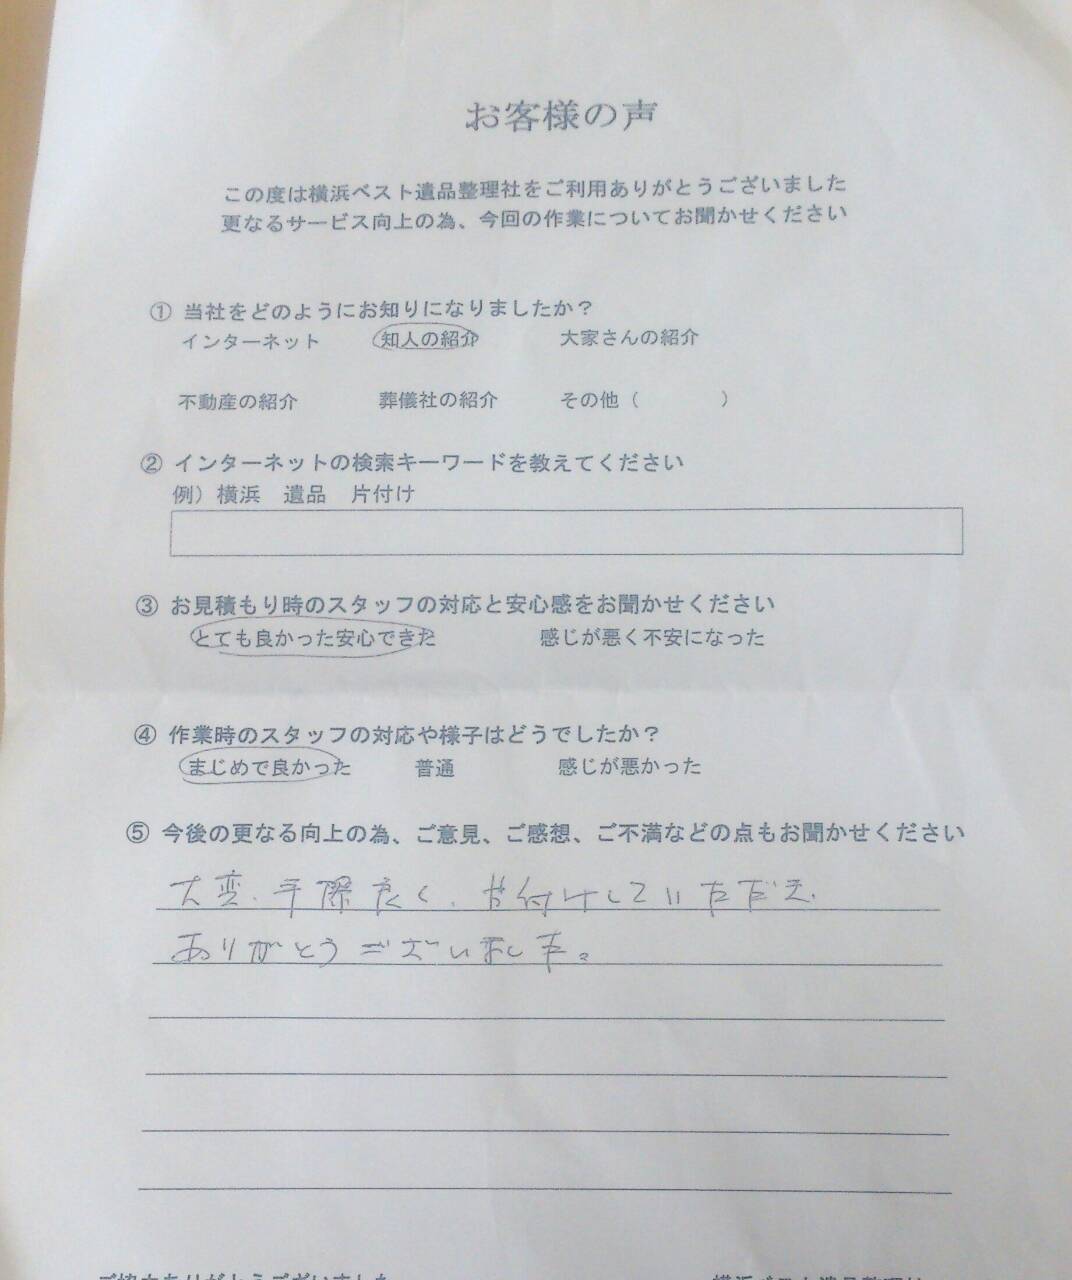 お客様の声
この度は横浜ベスト遺品整理社をご利用ありがとうございました
更なるサービス向上の為、今回の作業についてお聞かせください
① 当社をどのようにお知りになりましたか？
インターネット 知人の紹介 大家さんの紹介
不動産の紹介 葬儀社の紹介 その他（ ）
② インターネットの検索キーワードを教えてください
例）横浜 遺品 片付け
③ お見積もり時のスタッフの対応と安心感をお聞かせください
とても良かった安心できた 感じが悪く不安になった
④ 作業時のスタッフの対応や様子はどうでしたか？
まじめで良かった 普通 感じが悪かった
⑤ 今後の更なる向上の為、ご意見、ご感想、ご不満などの点もお聞かせください
大変、手際良く、片付けしていただき、
ありがとうございました。
ご協力ありがとうございました
横浜ベスト遺品整理社